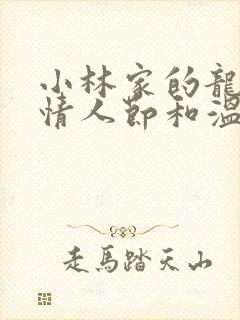 小林家的龍
情人節和溫
走馬踏天山